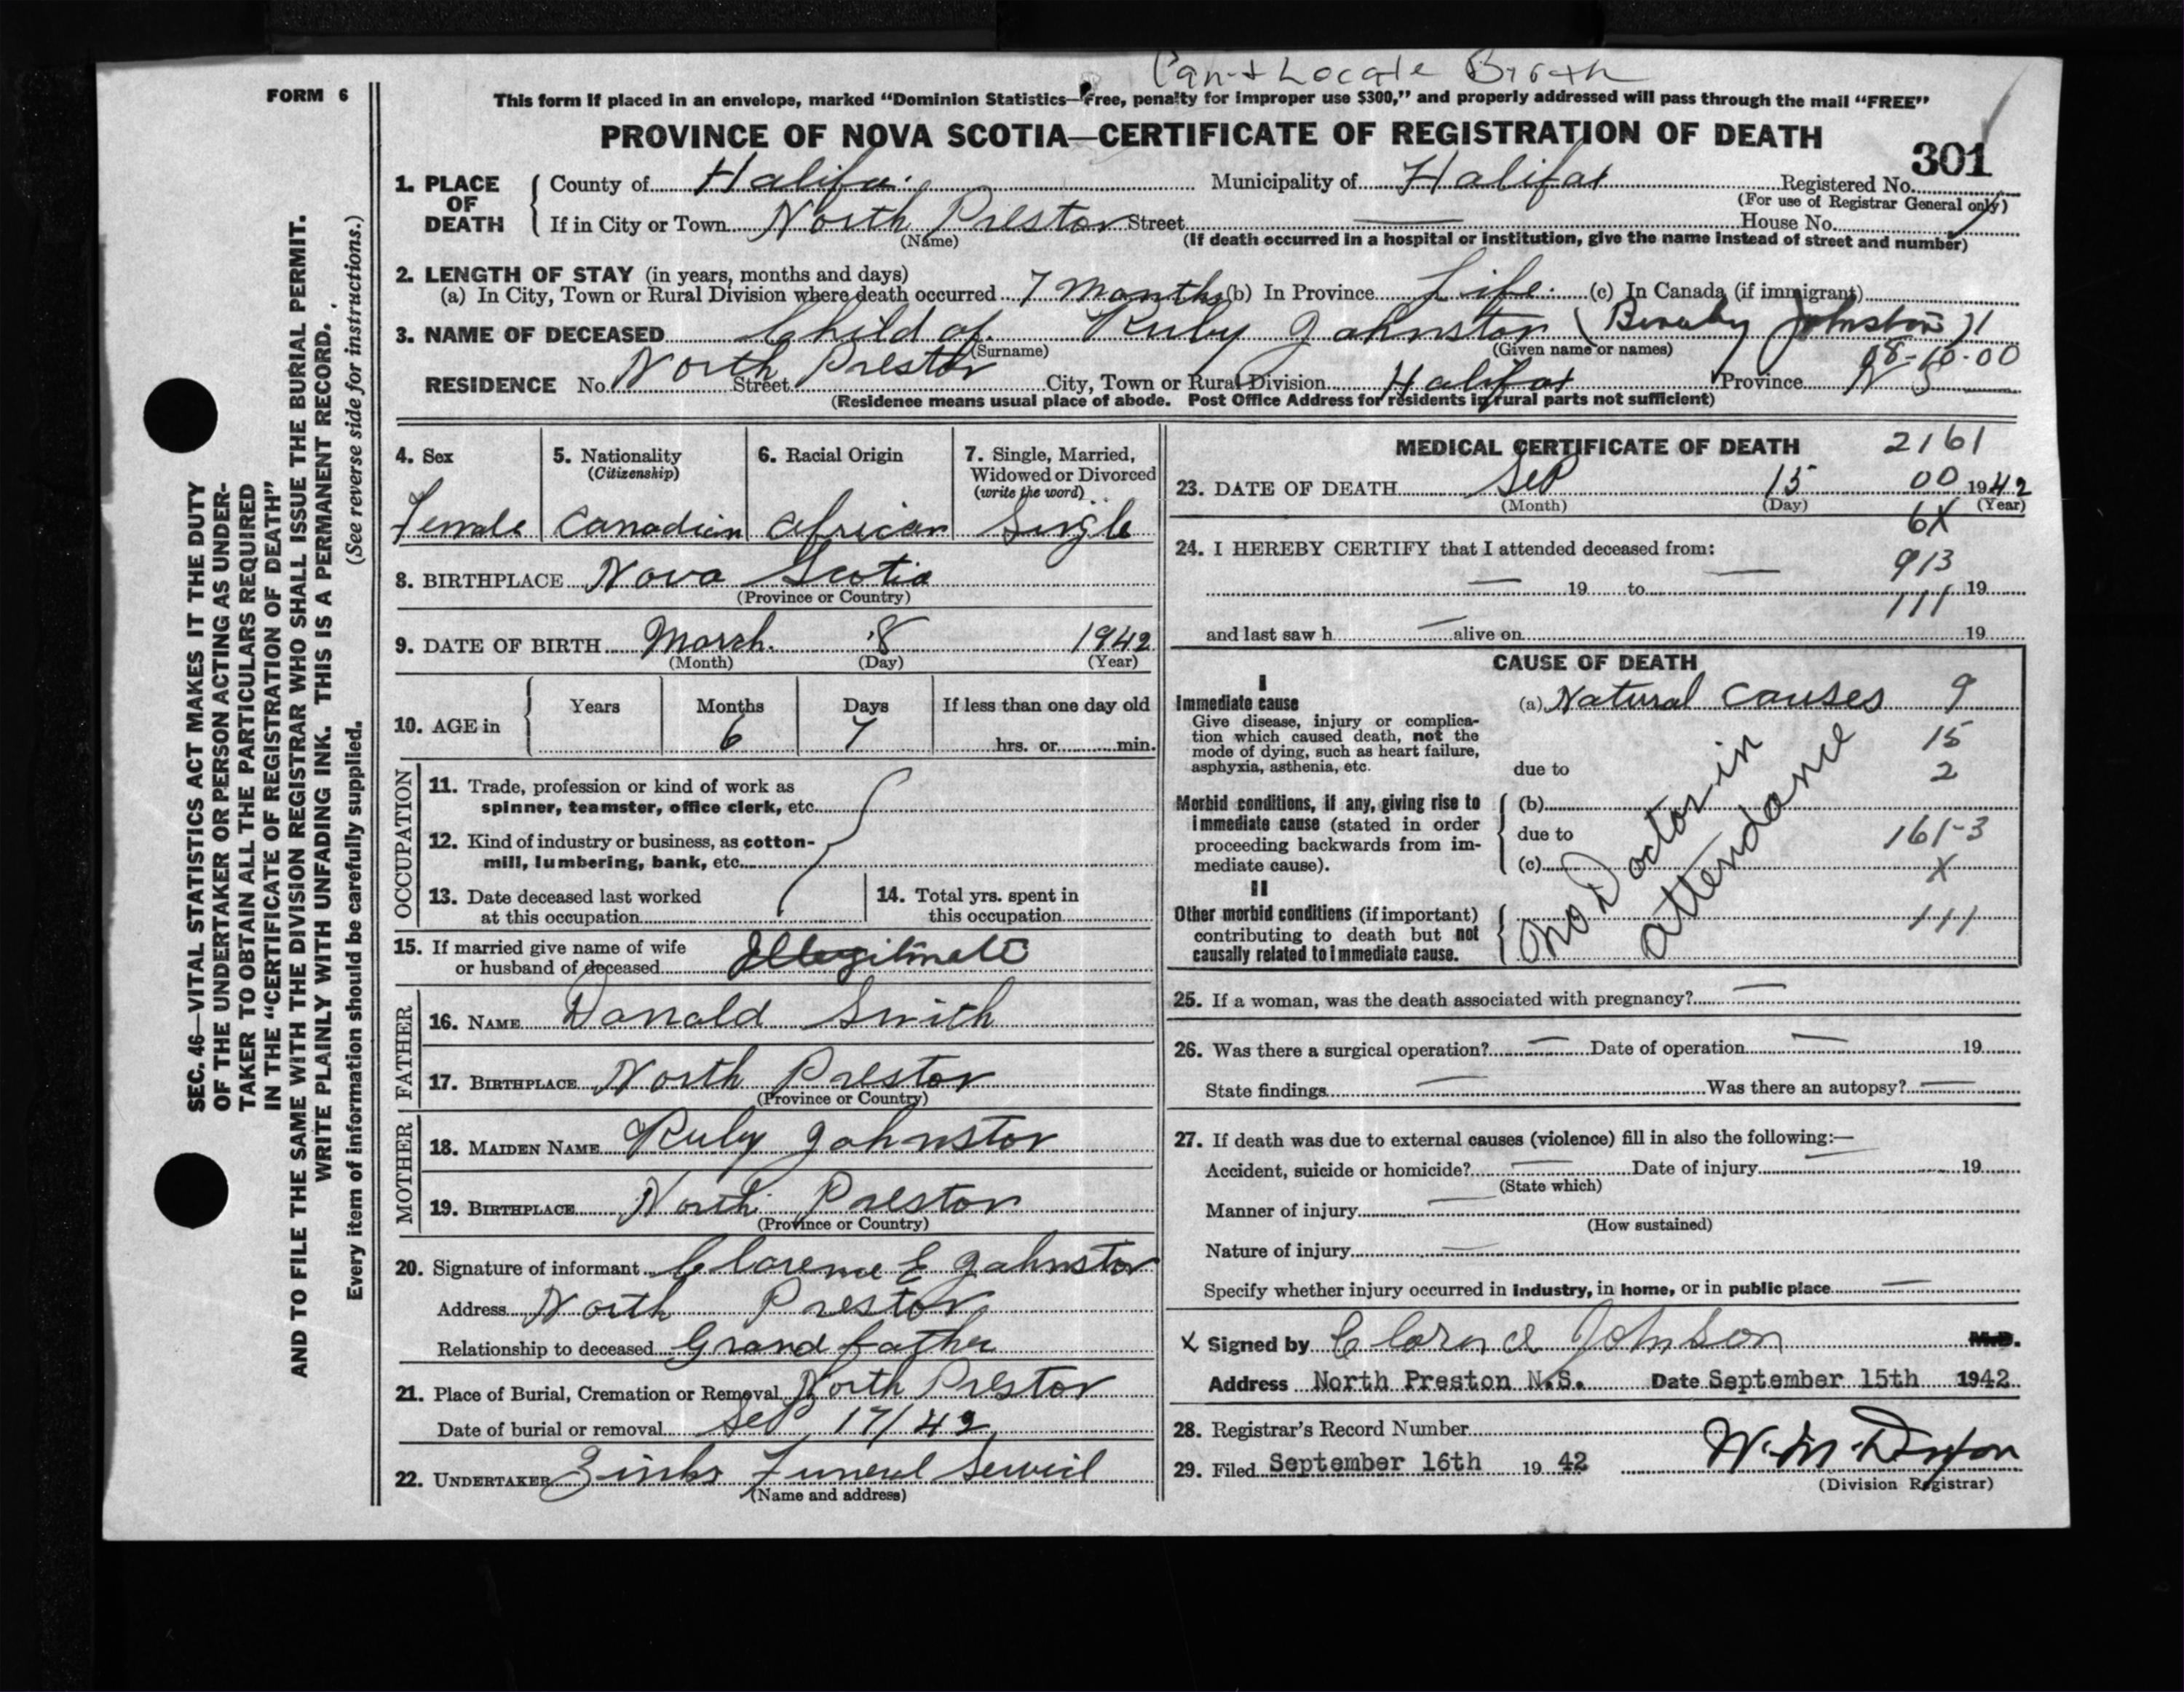 Can't Locate Birth
FORM 6
This form if placed in an envelope, marked “Dominion Statistics—Free, penalty for improper use $300,” and properly addressed will pass through the mail “FREE”
PROVINCE OF NOVA SCOTIA—CERTIFICATE OF REGISTRATION OF DEATH
301
1. PLACE OF DEATH
County of Halifax Municipality of Halifax Registered No.
(For use of Registrar General only)
If in City or Town North Preston Street House No.
(Name) (If death occurred in a hospital or institution, give the name instead of street and number)
2. LENGTH OF STAY (in years, months and days)
(a) In City, Town or Rural Division where death occurred 7 Months (b) In Province Life (c) In Canada (if immigrant)
3. NAME OF DECEASED Child of Ruby Johnston (Beverley Johnston)
(Surname) (Given name or names)
08-10-00
RESIDENCE No. North Preston Street City, Town or Rural Division Halifax Province N S
(Residence means usual place of abode. Post Office Address for residents in rural parts not sufficient)
4. Sex 5. Nationality 6. Racial Origin 7. Single, Married,
(Citizenship) Widowed or Divorced
(write the word)
Female Canadian African Single
8. BIRTHPLACE Nova Scotia
(Province or Country)
9. DATE OF BIRTH March 8 1942
(Month) (Day) (Year)
10. AGE in Years Months Days If less than one day old
6 7 hrs. or min.
OCCUPATION
11. Trade, profession or kind of work as
spinner, teamster, office clerk, etc.
12. Kind of industry or business, as cotton-
mill, lumbering, bank, etc.
13. Date deceased last worked 14. Total yrs. spent in
at this occupation this occupation
15. If married give name of wife
or husband of deceased Illegitimate
FATHER
16. NAME Donald Smith
17. BIRTHPLACE North Preston
(Province or Country)
MOTHER
18. MAIDEN NAME Ruby Johnston
19. BIRTHPLACE North Preston
(Province or Country)
20. Signature of informant Clarence E Johnston
Address North Preston
Relationship to deceased Grand father
21. Place of Burial, Cremation or Removal North Preston
Date of burial or removal Sep 17/42
22. UNDERTAKER Zinks Funeral Service
(Name and address)
MEDICAL CERTIFICATE OF DEATH
2161
23. DATE OF DEATH Sep 15 00 1942
(Month) (Day) (Year)
6X
24. I HEREBY CERTIFY that I attended deceased from:
913
— 19 to — 19
111
and last saw h — alive on 19
CAUSE OF DEATH
I
Immediate cause (a) Natural causes 9
Give disease, injury or complica-
tion which caused death, not the
mode of dying, such as heart failure,
asphyxia, asthenia, etc. due to
15
2
Morbid conditions, if any, giving rise to (b)
immediate cause (stated in order due to
proceeding backwards from im-
mediate cause). (c)
161-3
X
No Doctor in
attendance
II
Other morbid conditions (if important)
contributing to death but not
causally related to immediate cause.
111
25. If a woman, was the death associated with pregnancy? —
26. Was there a surgical operation? — Date of operation — 19
State findings — Was there an autopsy? —
27. If death was due to external causes (violence) fill in also the following:—
Accident, suicide or homicide? — Date of injury — 19
(State which)
Manner of injury —
(How sustained)
Nature of injury —
Specify whether injury occurred in industry, in home, or in public place —
X Signed by Clarence Johnson M.D.
Address North Preston N.S. Date September 15th 1942
28. Registrar's Record Number
29. Filed September 16th 19 42
(Division Registrar)
SEC. 46—VITAL STATISTICS ACT MAKES IT THE DUTY
OF THE UNDERTAKER OR PERSON ACTING AS UNDER-
TAKER TO OBTAIN ALL THE PARTICULARS REQUIRED
IN THE “CERTIFICATE OF REGISTRATION OF DEATH”
AND TO FILE THE SAME WITH THE DIVISION REGISTRAR WHO SHALL ISSUE THE BURIAL PERMIT.
WRITE PLAINLY WITH UNFADING INK. THIS IS A PERMANENT RECORD.
Every item of information should be carefully supplied. (See reverse side for instructions.)